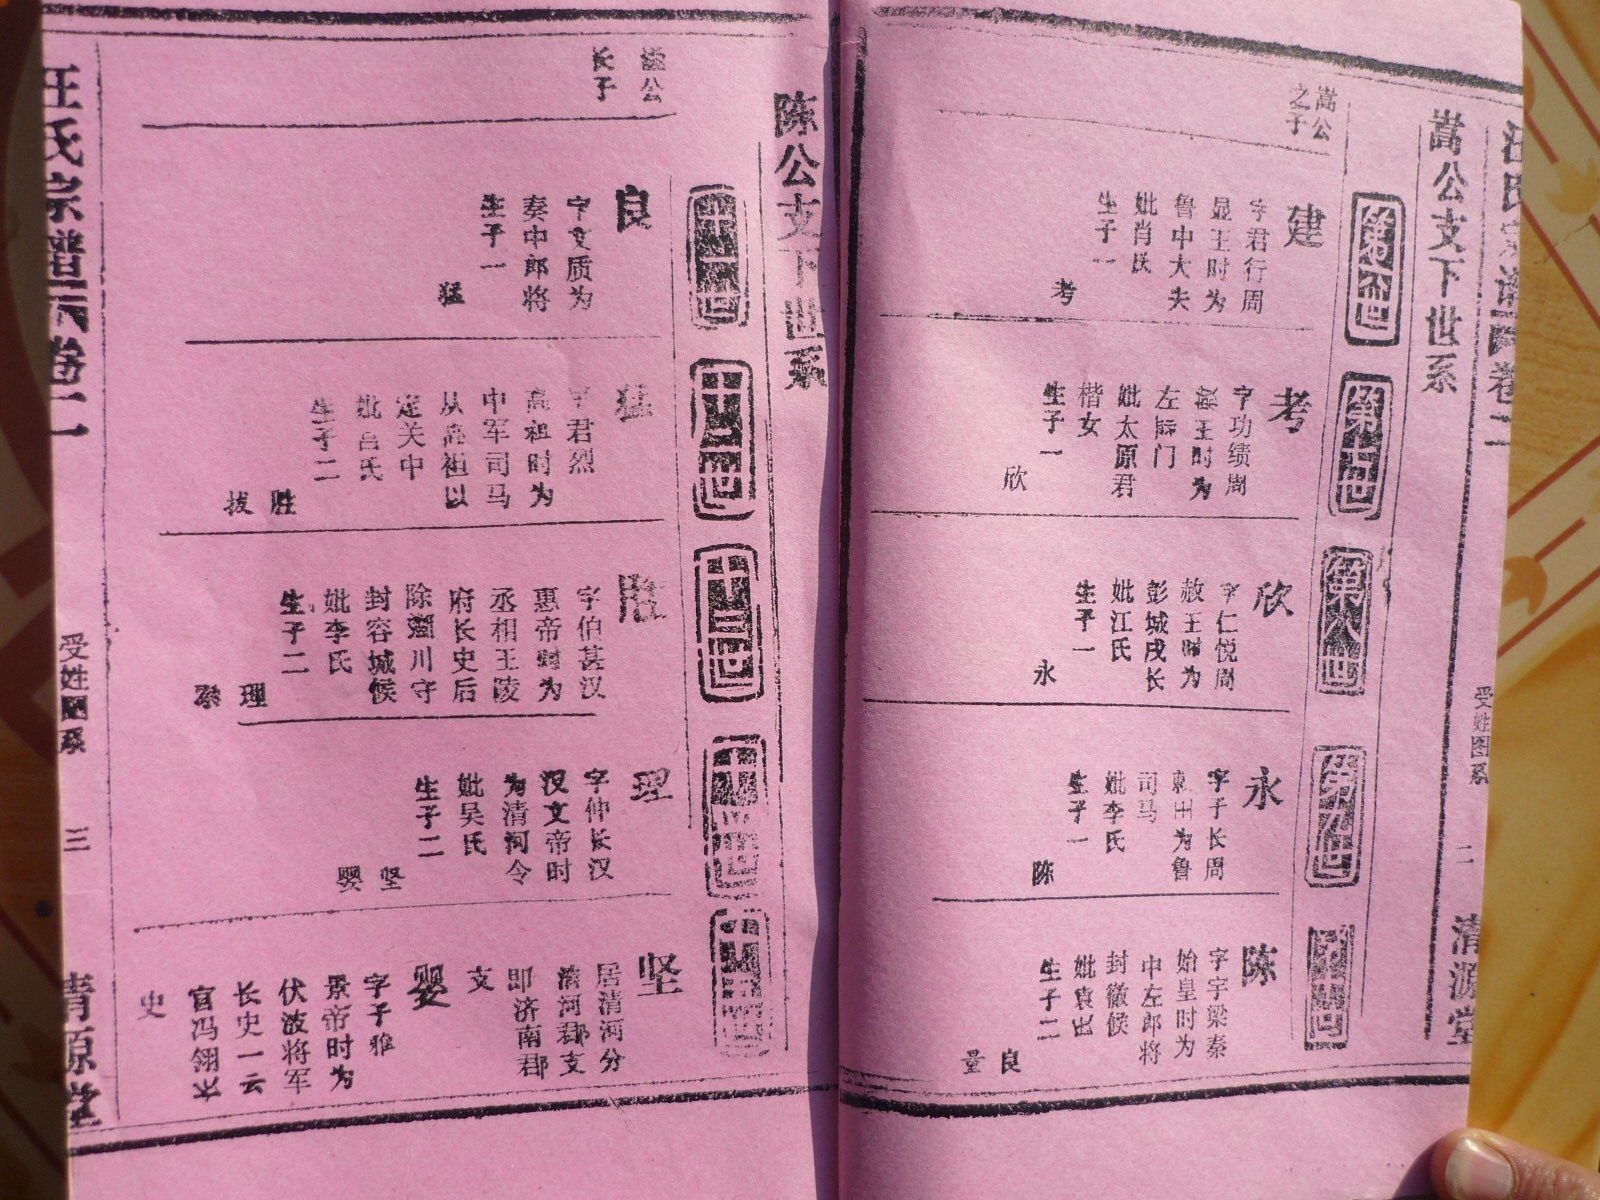 汪氏宗谱
卷二
受姓图系
二
清源堂
嵩公支下世系
第六世
第七世
第八世
第九世
嵩公
之子
建
字君行周
显王时为
鲁中大夫
妣肖氏
生子一
考
考
字功绩周
王时为
左
妣太原君
楷女
生子一
欣
欣
字仁悦周
赧王时为
彭城戍长
妣江氏
生子一
永
永
字子长周
为鲁
司马
妣李氏
生子一
陈
陈
字宇梁秦
始皇时为
中左郎将
封徽候
妣袁出
生子二
良
量
陈公支下世系
十一世
十二世
十三世
十四世
公
长子
良
字文质为
奏中郎将
生子一
猛
猛
字君烈
高祖时为
中军司马
从高祖以
定关中
妣吕氏
生子二
胜
拔
胜
字伯甚汉
惠帝时为
丞相王陵
府长史后
除潮川守
封容城候
妣李氏
生子二
理
理
字仲长汉
汉文帝时
为清河令
妣吴氏
生子二
坚
婴
坚
居清河分
清河郡支
即济南郡
支
婴
字子雅
景帝时为
伏波将军
长史一云
官冯翎长
史
汪氏宗谱
卷二
受姓图系
三
清源堂